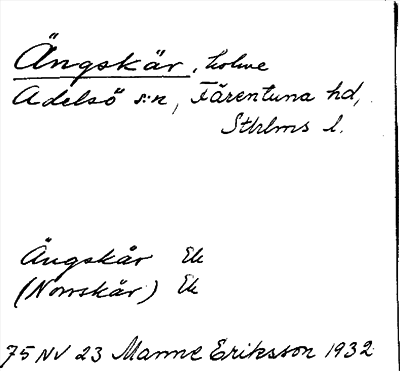 Ängskär, holme
Adelsö s:n, Färentuna hd,
Sthlms l.
Ängskär Ek
(Norrskär) Ek
75 NV 23 Manne Eriksson 1932